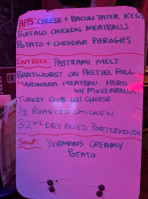 APPS: CHEESE + BACON TATER KEGS
BUFFALO CHICKEN MEATBALLS
POTATO + CHEDDAR PIEROGIES
ENTREES: PASTRAMI MELT
BRATWURST ON PRETZEL ROLL
MARINARA MEATBALL HERO
W/ MOZZARELLA
TURKEY CLUB W/ CHEESE
1/2 ROASTED CHICKEN
32OZ DRY AGED PORTERHOUSE
SOUP: YERMANS CREAMY
POTATO